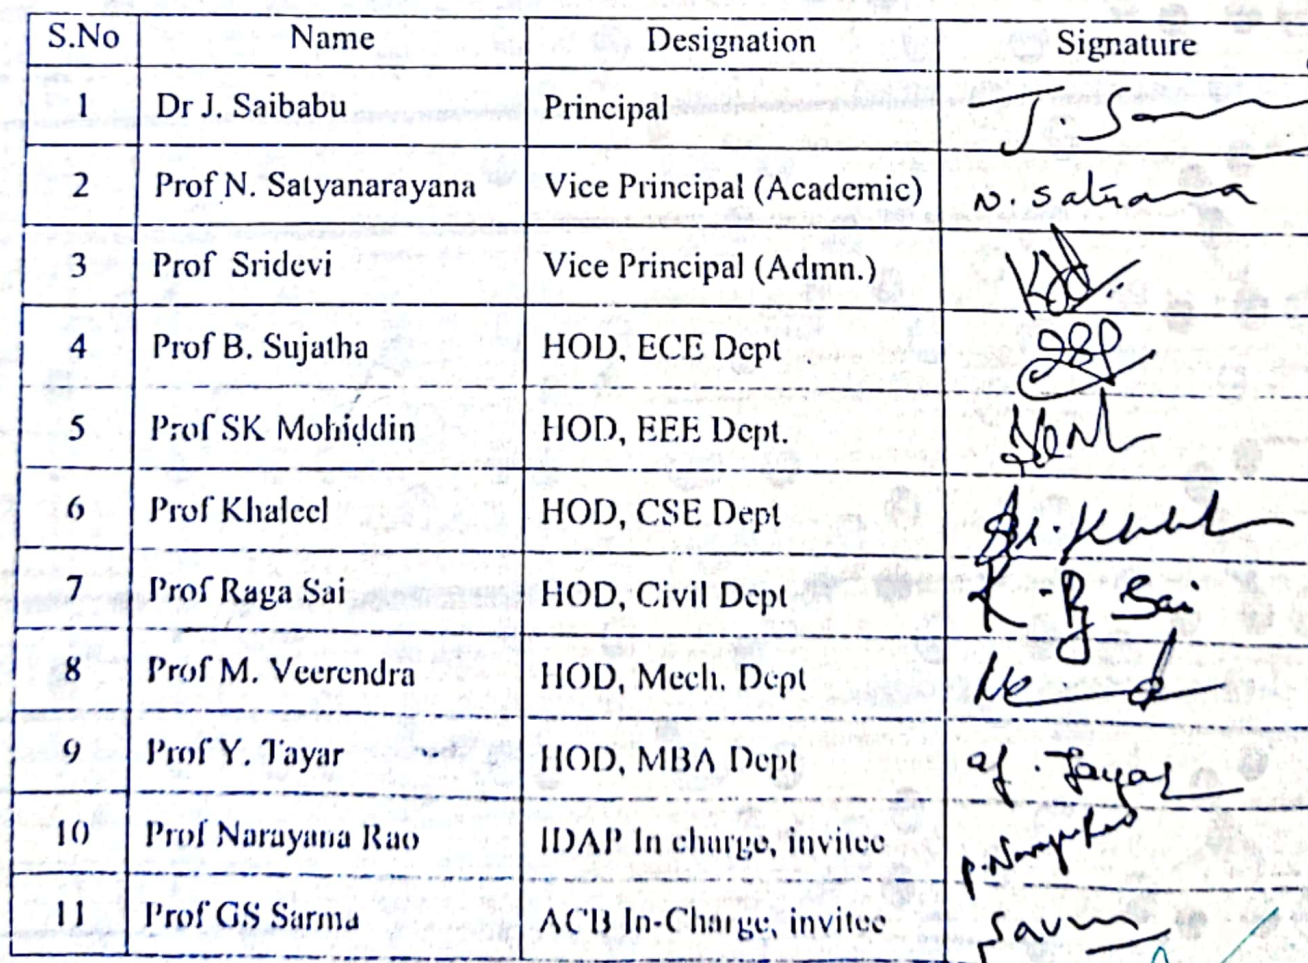 S.No Name Designation Signature
1 Dr J. Saibabu Principal J. S
2 Prof N. Satyanarayana Vice Principal (Academic) N. Satyana
3 Prof Sridevi Vice Principal (Admn.)
4 Prof B. Sujatha HOD, ECE Dept
5 Prof SK Mohiddin HOD, EEE Dept.
6 Prof Khaleel HOD, CSE Dept
7 Prof Raga Sai HOD, Civil Dept K. Sai
8 Prof M. Veerendra HOD, Mech. Dept
9 Prof Y. Tayar HOD, MBA Dept Y. Tayar
10 Prof Narayana Rao IDAP In charge, invitee
11 Prof GS Sarma ACB In-Charge, invitee